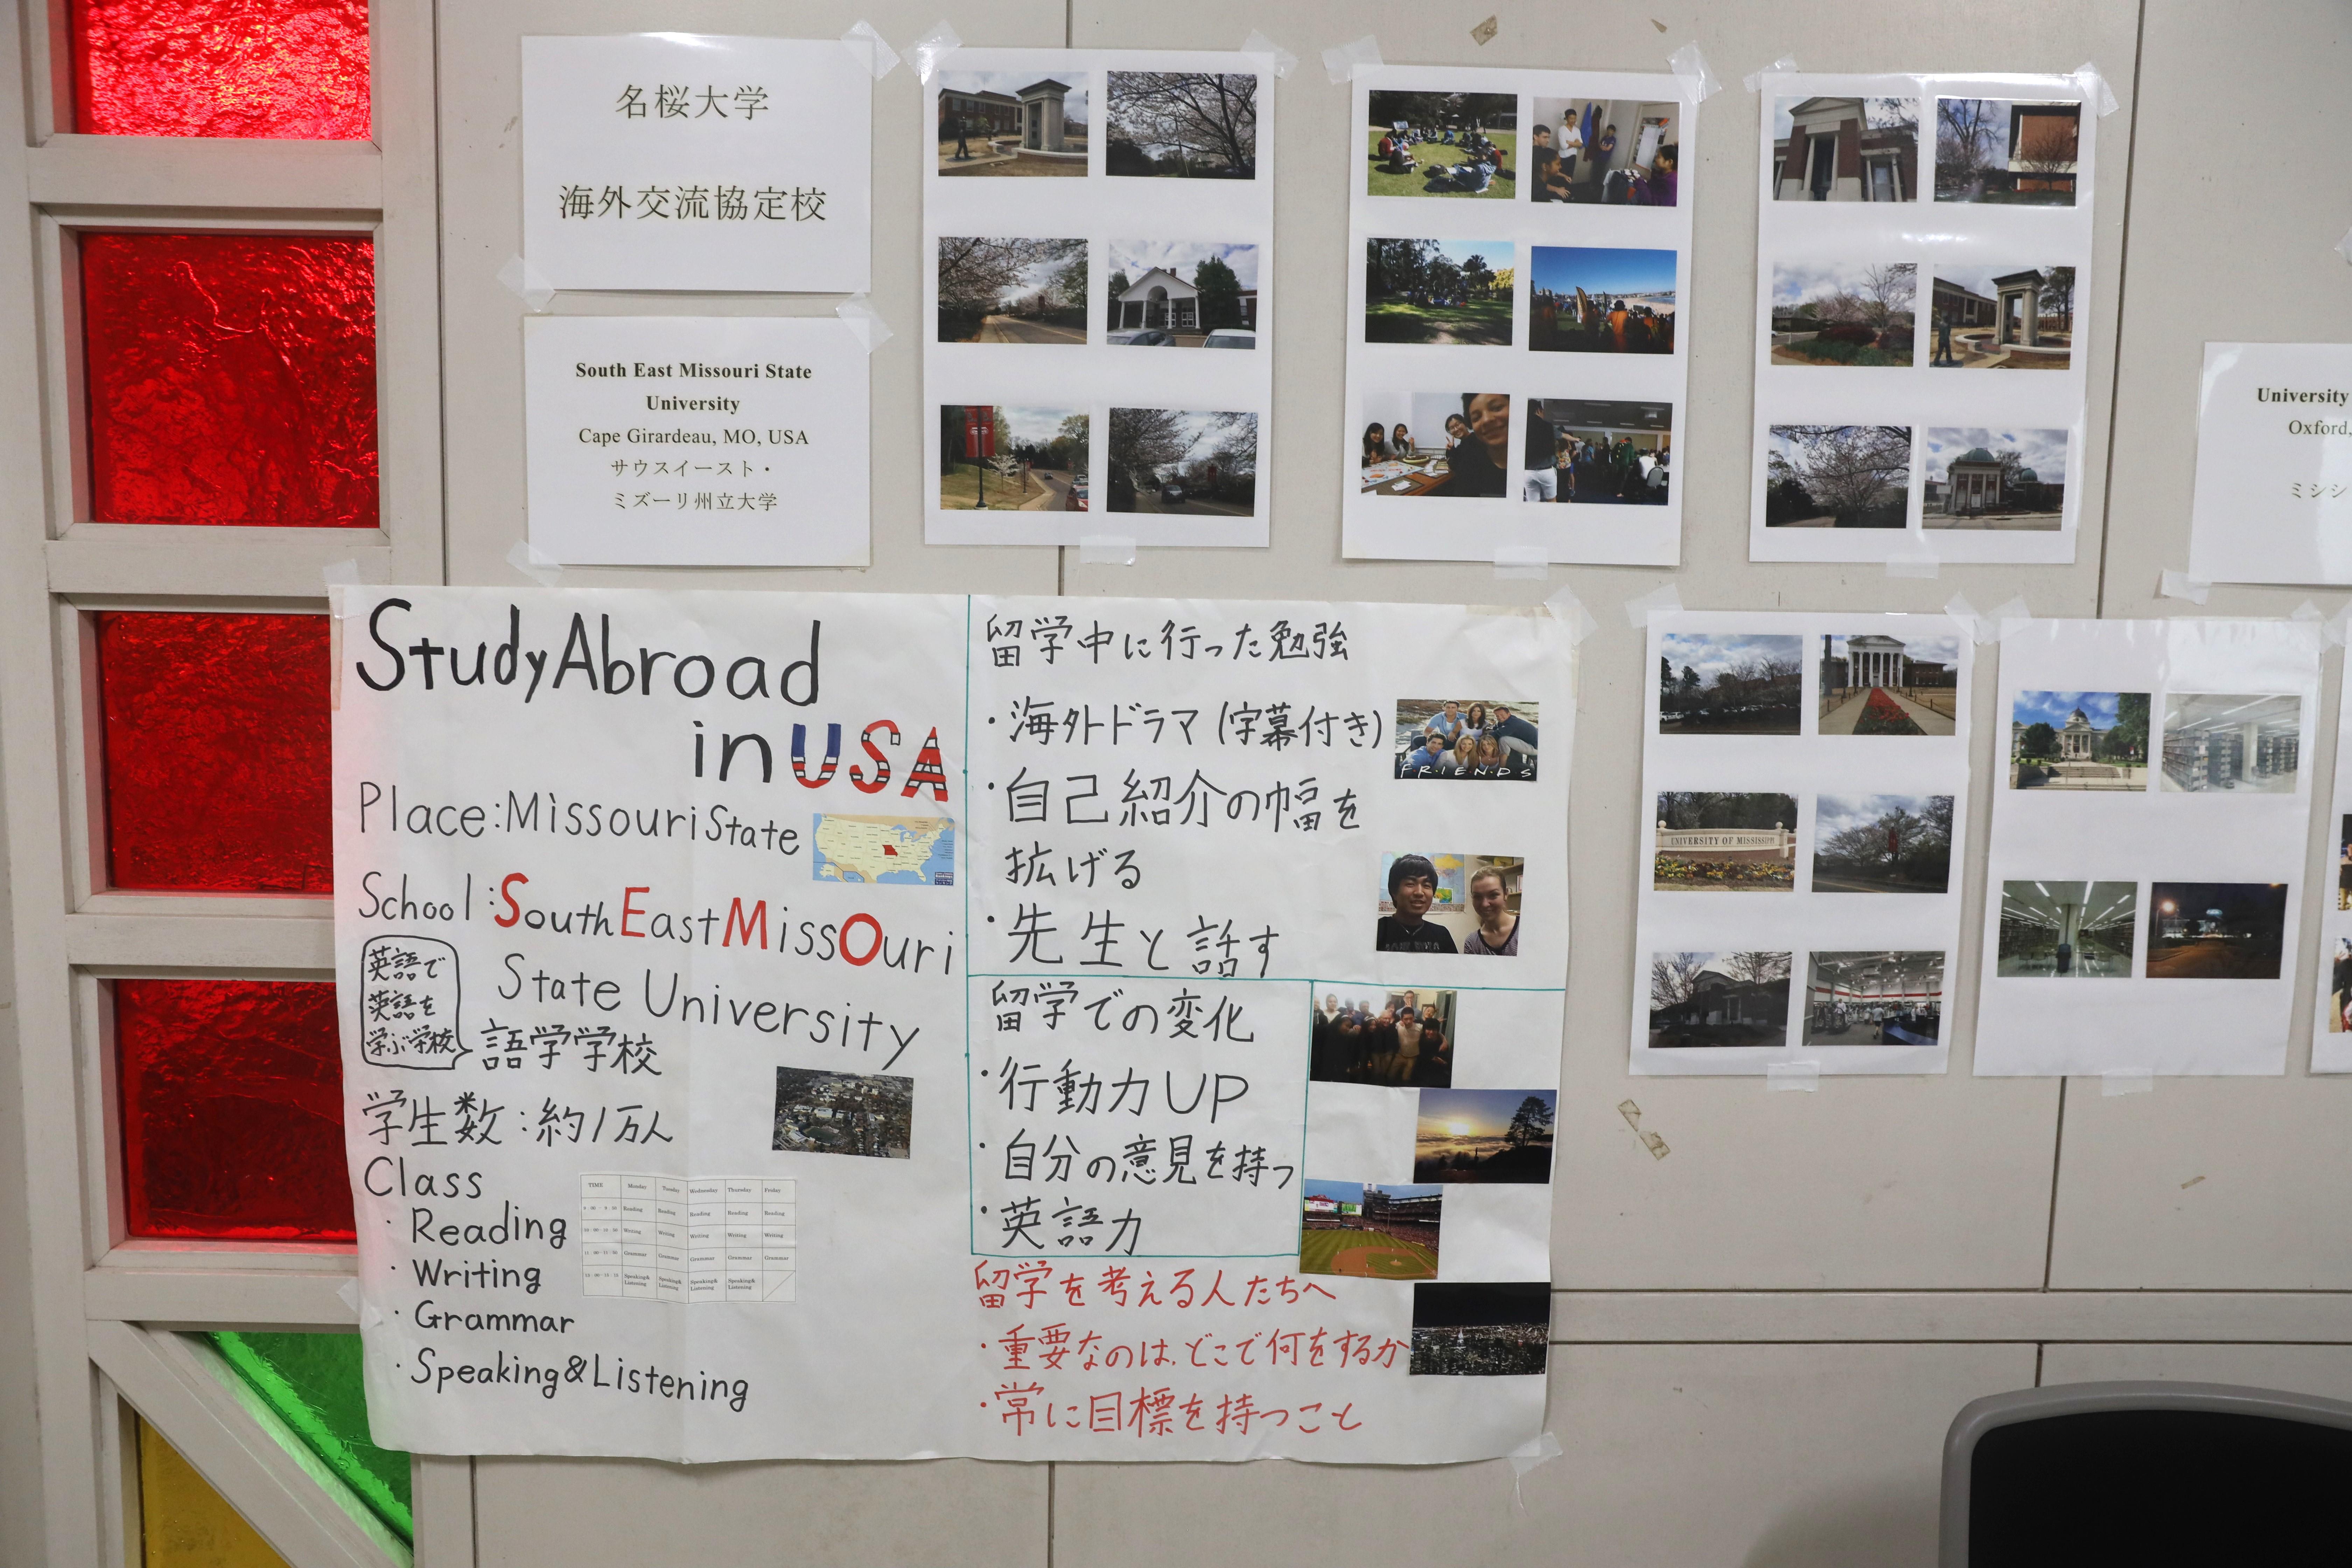 名桜大学
海外交流協定校
South East Missouri State
University
Cape Girardeau, MO, USA
サウスイースト・
ミズーリ州立大学
University
Oxford,
ミシシ
UNIVERSITY OF MISSISSIPPI
Study Abroad
in USA
Place:Missouri State
School:South East Missouri
State University
英語で
英語を
学ぶ学校
語学学校
学生数:約1万人
Class
・Reading
・Writing
・Grammar
・Speaking&Listening
TIME Monday Tuesday Wednesday Thursday Friday
Reading Reading Reading Reading Reading
Writing Writing Writing Writing Writing
Grammar Grammar Grammar Grammar Grammar
Speaking& Speaking& Speaking& Speaking&
Listening Listening Listening Listening
留学中に行った勉強
・海外ドラマ(字幕付き)
F・R・I・E・N・D・S
・自己紹介の幅を
拡げる
・先生と話す
留学での変化
・行動力UP
・自分の意見を持つ
・英語力
留学を考える人たちへ
・重要なのは、どこで何をするか
・常に目標を持つこと